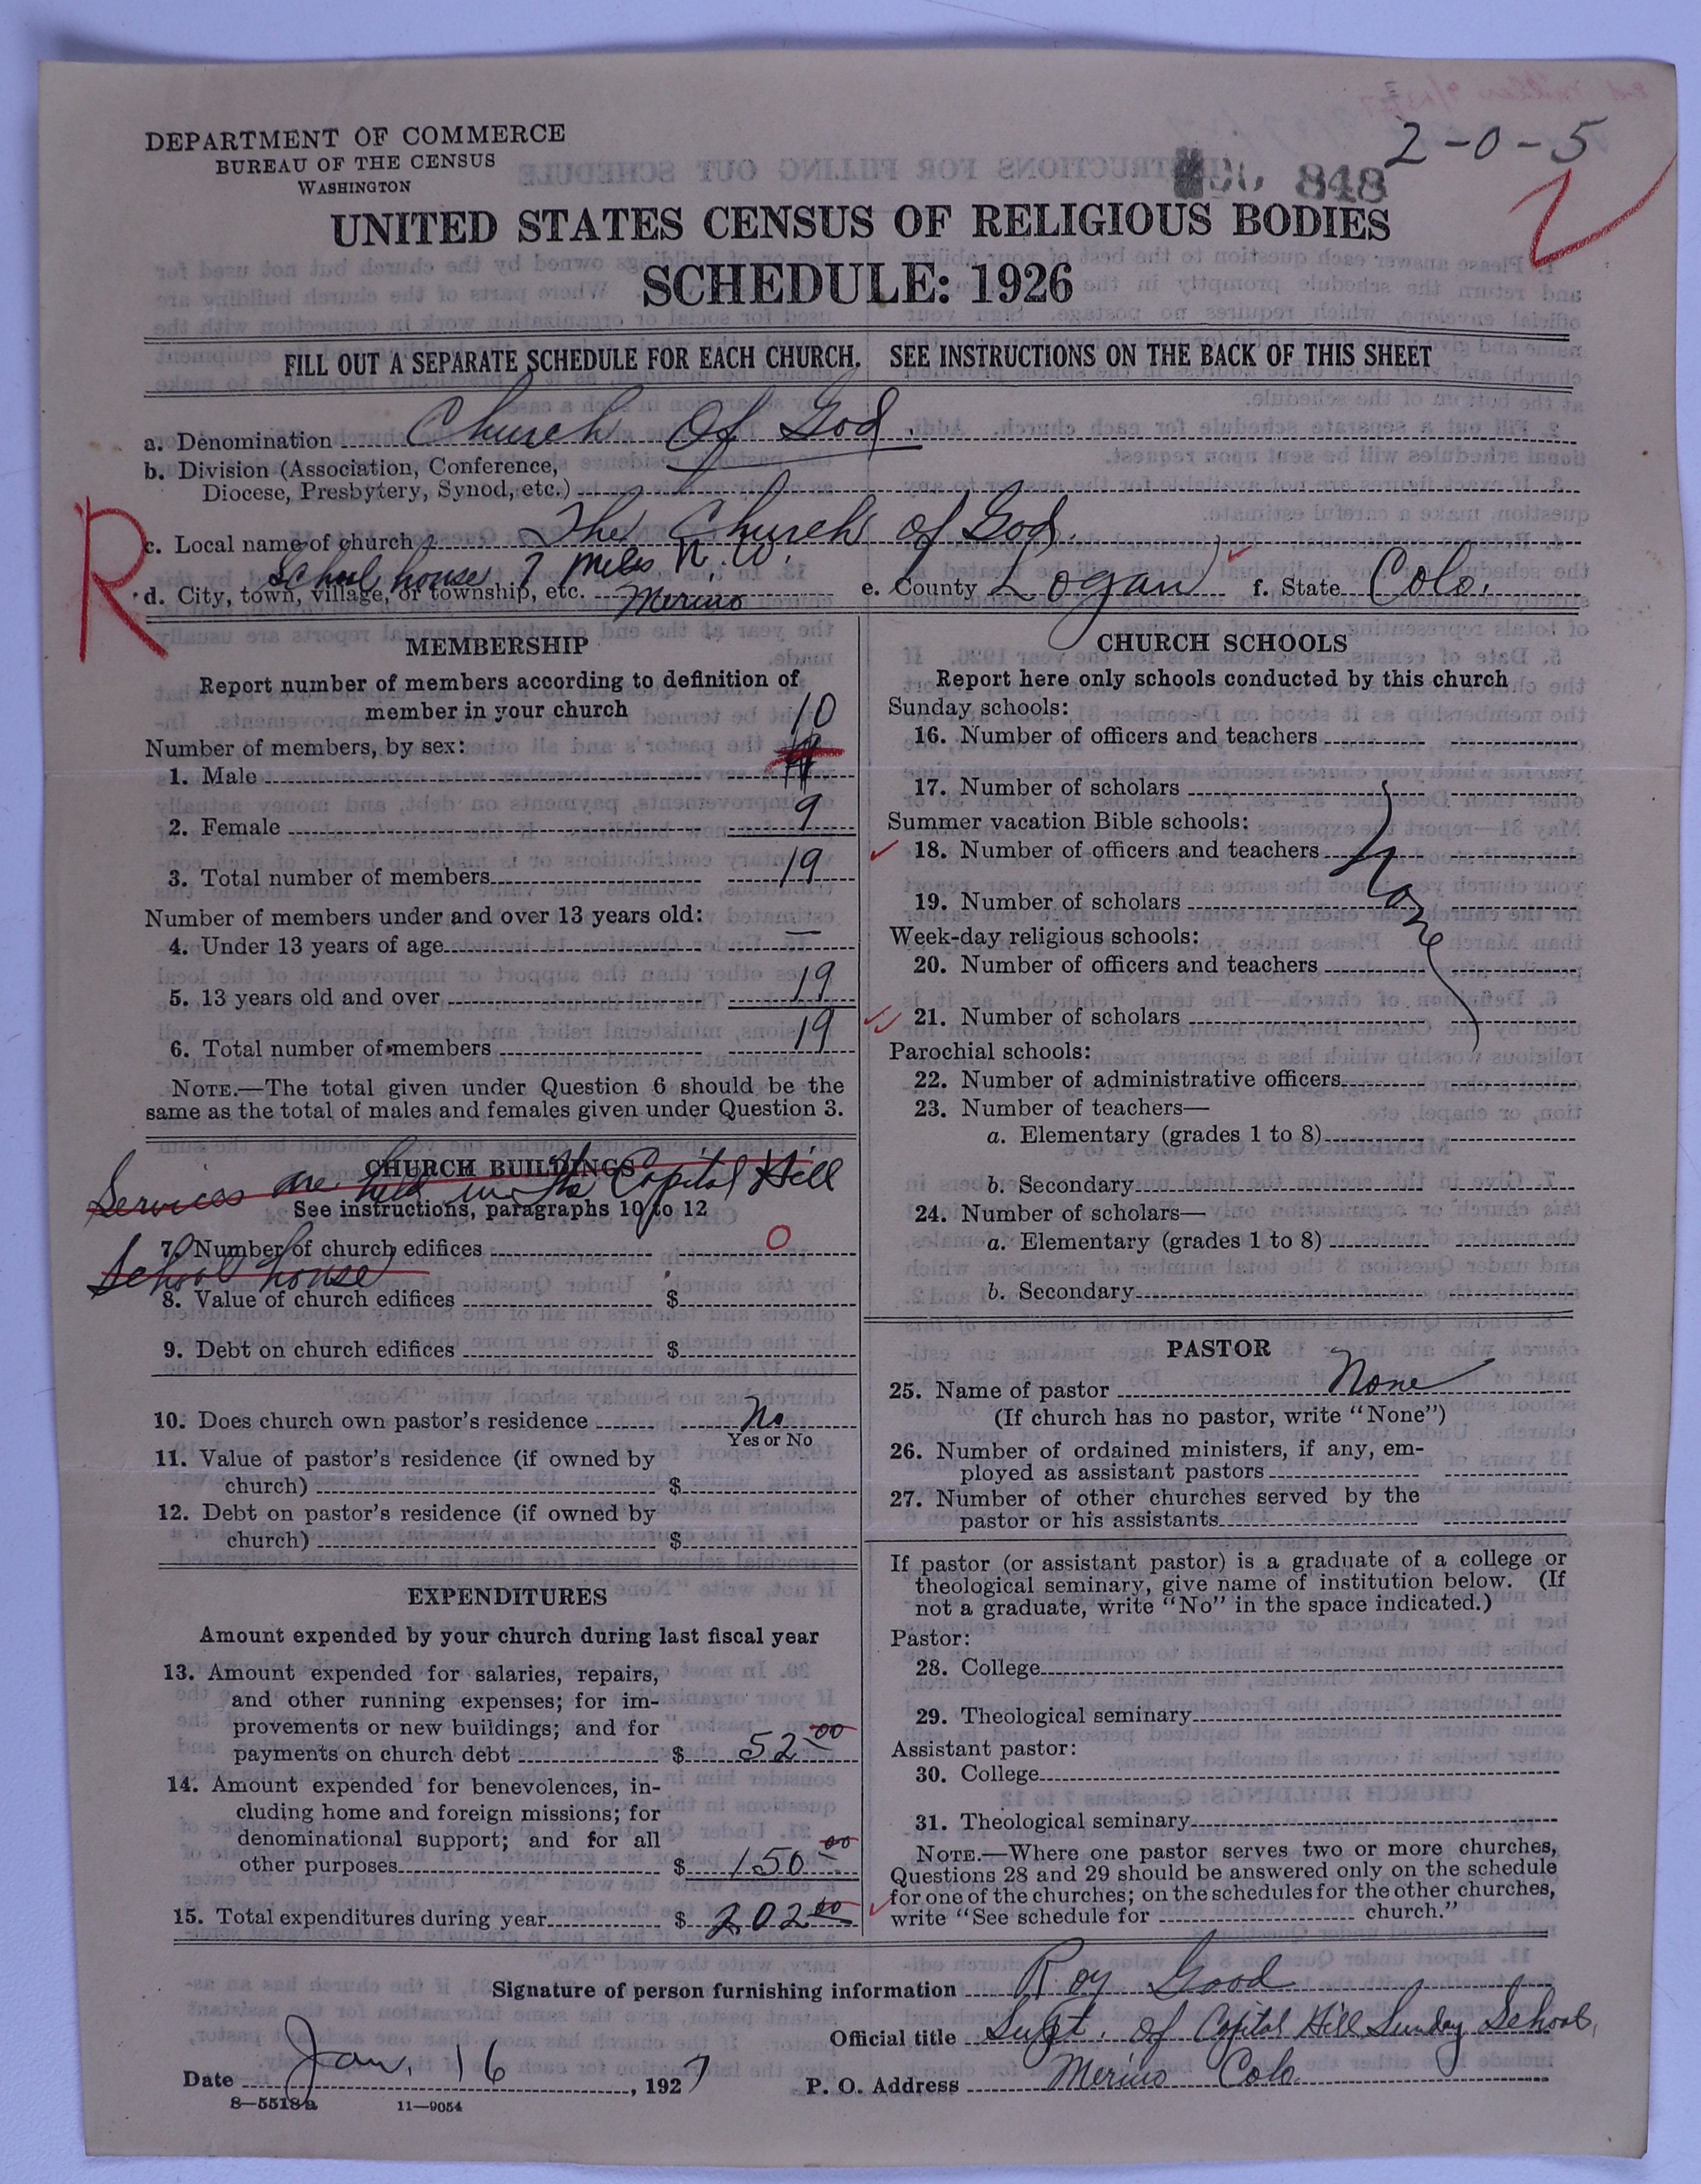 2-0-5
848
DEPARTMENT OF COMMERCE
BUREAU OF THE CENSUS
WASHINGTON
UNITED STATES CENSUS OF RELIGIOUS BODIES
SCHEDULE: 1926
FILL OUT A SEPARATE SCHEDULE FOR EACH CHURCH. SEE INSTRUCTIONS ON THE BACK OF THIS SHEET
a. Denomination Church Of God.
b. Division (Association, Conference,
Diocese, Presbytery, Synod, etc.)
R
c. Local name of church The Church of God.
School house 7 miles N. W.
d. City, town, village, or township, etc. Merino e. County Logan f. State Colo.
MEMBERSHIP
Report number of members according to definition of
member in your church
Number of members, by sex:
10
1. Male
2. Female 9
3. Total number of members 19
Number of members under and over 13 years old:
4. Under 13 years of age —
5. 13 years old and over 19
6. Total number of members 19
NOTE.—The total given under Question 6 should be the
same as the total of males and females given under Question 3.
CHURCH BUILDINGS
Services are held in the Capital Hill
See instructions, paragraphs 10 to 12
7. Number of church edifices 0
School house
8. Value of church edifices $
9. Debt on church edifices $
10. Does church own pastor's residence No
Yes or No
11. Value of pastor's residence (if owned by
church) $
12. Debt on pastor's residence (if owned by
church) $
EXPENDITURES
Amount expended by your church during last fiscal year
13. Amount expended for salaries, repairs,
and other running expenses; for im-
provements or new buildings; and for
payments on church debt $ 52.00
14. Amount expended for benevolences, in-
cluding home and foreign missions; for
denominational support; and for all
other purposes $ 150.00
15. Total expenditures during year $ 202.00
CHURCH SCHOOLS
Report here only schools conducted by this church
Sunday schools:
16. Number of officers and teachers
17. Number of scholars
Summer vacation Bible schools:
18. Number of officers and teachers
None
19. Number of scholars
Week-day religious schools:
20. Number of officers and teachers
21. Number of scholars
Parochial schools:
22. Number of administrative officers
23. Number of teachers—
a. Elementary (grades 1 to 8)
b. Secondary
24. Number of scholars—
a. Elementary (grades 1 to 8)
b. Secondary
PASTOR
25. Name of pastor None
(If church has no pastor, write "None")
26. Number of ordained ministers, if any, em-
ployed as assistant pastors
27. Number of other churches served by the
pastor or his assistants
If pastor (or assistant pastor) is a graduate of a college or
theological seminary, give name of institution below. (If
not a graduate, write "No" in the space indicated.)
Pastor:
28. College
29. Theological seminary
Assistant pastor:
30. College
31. Theological seminary
NOTE.—Where one pastor serves two or more churches,
Questions 28 and 29 should be answered only on the schedule
for one of the churches; on the schedules for the other churches,
write "See schedule for church."
Signature of person furnishing information Roy Good
Official title Supt. of Capital Hill Sunday School,
Date Jan. 16, 1927 P. O. Address Merino Colo
8—5518a 11—9054